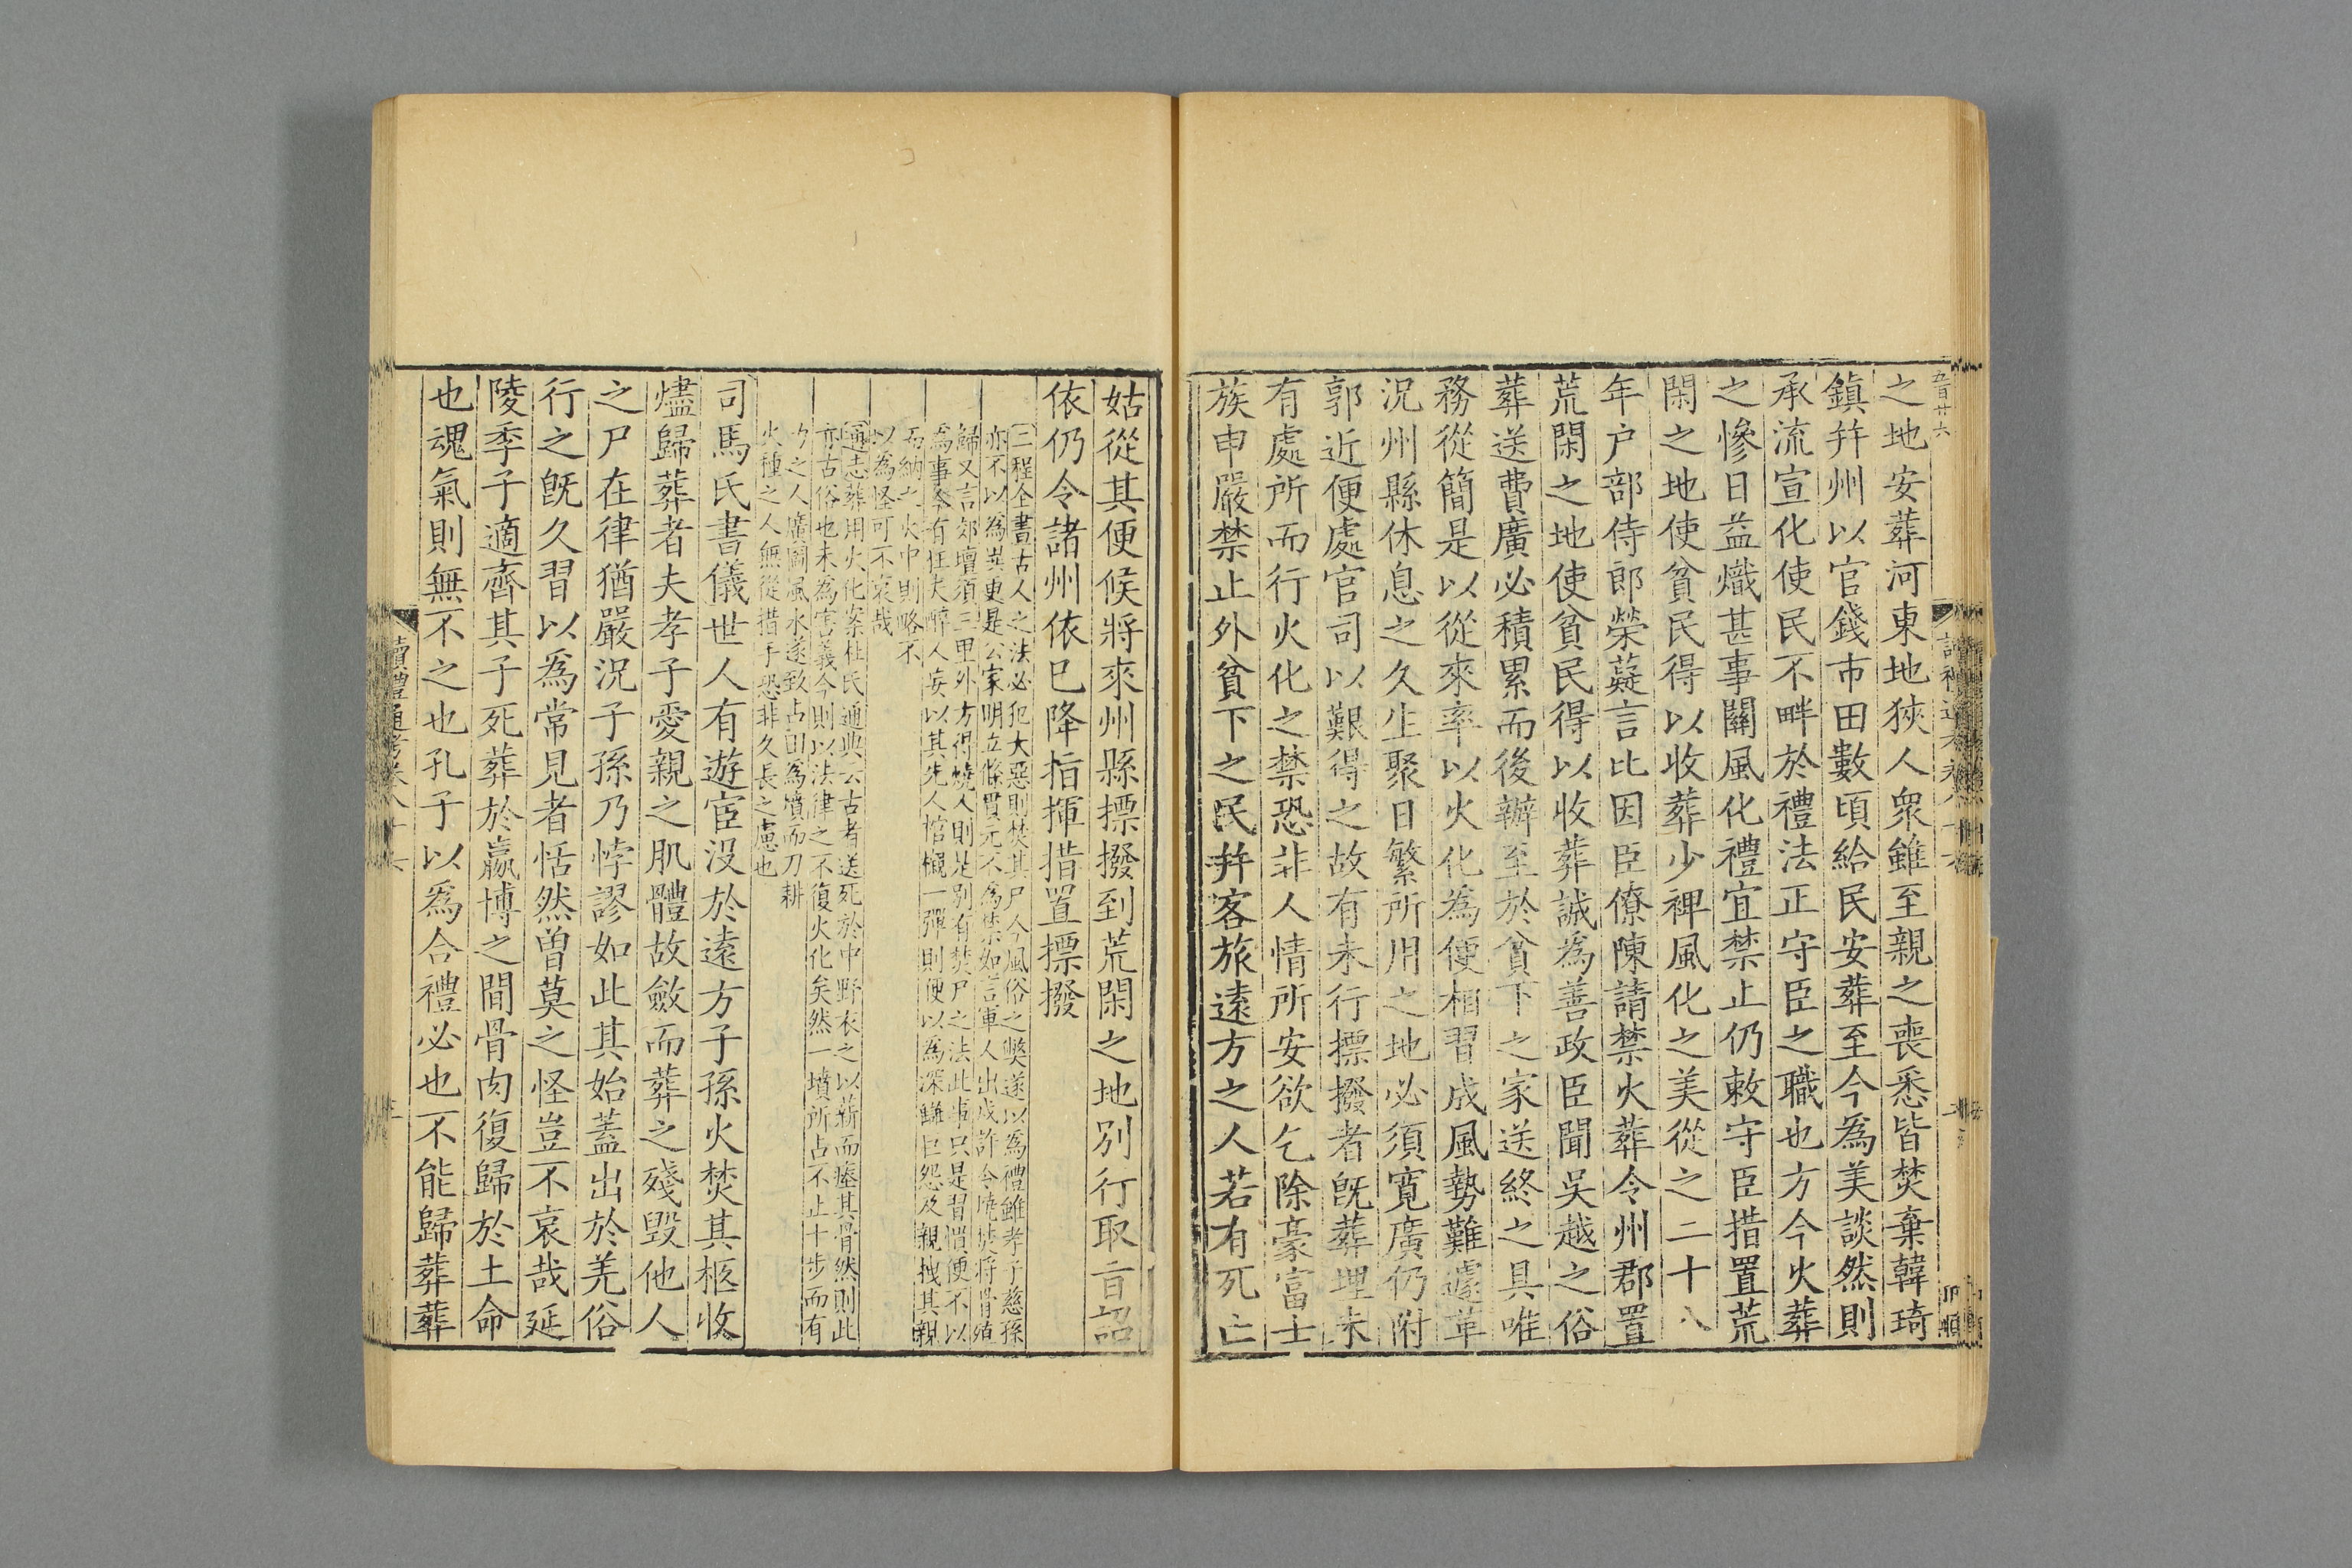 五百廿六
之地安葬河東地狹人衆雖至親之喪悉皆焚棄韓琦
鎮幷州以官錢市田數頃給民安葬至今爲美談然則
承流宣化使民不畔於禮法正守臣之職也方今火葬
之慘日益熾甚事關風化禮宜禁止仍敕守臣措置荒
閑之地使貧民得以收葬少裨風化之美從之二十八
年户部侍郎榮薿言比因臣僚陳請禁火葬令州郡置
荒閑之地使貧民得以收葬誠爲善政臣聞吳越之俗
葬送費廣必積累而後辦至於貧下之家送終之具唯
務從簡是以從來率以火化為便相習成風勢難遽革
況州縣休息之久生聚日繁所用之地必須寬廣仍附
郭近便處官司以艱得之故有未行摽撥者旣葬埋未
有處所而行火化之禁恐非人情所安欲乞除豪富士
族申嚴禁止外貧下之民幷客旅遠方之人若有死亡
姑從其便候將來州縣摽撥到荒閑之地別行取旨詔
依仍令諸州依已降指揮措置摽撥
二程全書古人之法必犯大惡則焚其尸今風俗之獘遂以爲禮雖孝子慈孫
亦不以為異更是公家明立條貫元不為禁如言軍人出戍許令燒焚將骨殖
歸又言郊壇須三里外方得燒人則是別有焚尸之法此事只是習慣便不以
為事今有狂夫醉人妄以其先人棺櫬一彈則便以為深讎巨怨及親拽其親
而納之火中則略不
以為怪可不哀哉
通志葬用火化案杜氏通典云古者送死於中野衣之以薪而瘞其骨然則此
亦古俗也未為害義今則以法律之不復火化矣然一墳所占不止十步而有
力之人廣圖風水遂致占田為墳而刀耕
火種之人無從措手恐非久長之慮也
司馬氏書儀世人有遊宦没於遠方子孫火焚其柩收
燼歸葬者夫孝子愛親之肌體故斂而葬之殘毀他人
之尸在律猶嚴況子孫乃悖謬如此其始蓋出於羌俗
行之旣久習以爲常見者恬然曾莫之怪豈不哀哉延
陵季子適齊其子死葬於嬴博之間骨肉復歸於土命
也魂氣則無不之也孔子以爲合禮必也不能歸葬葬
讀禮通考卷八十六